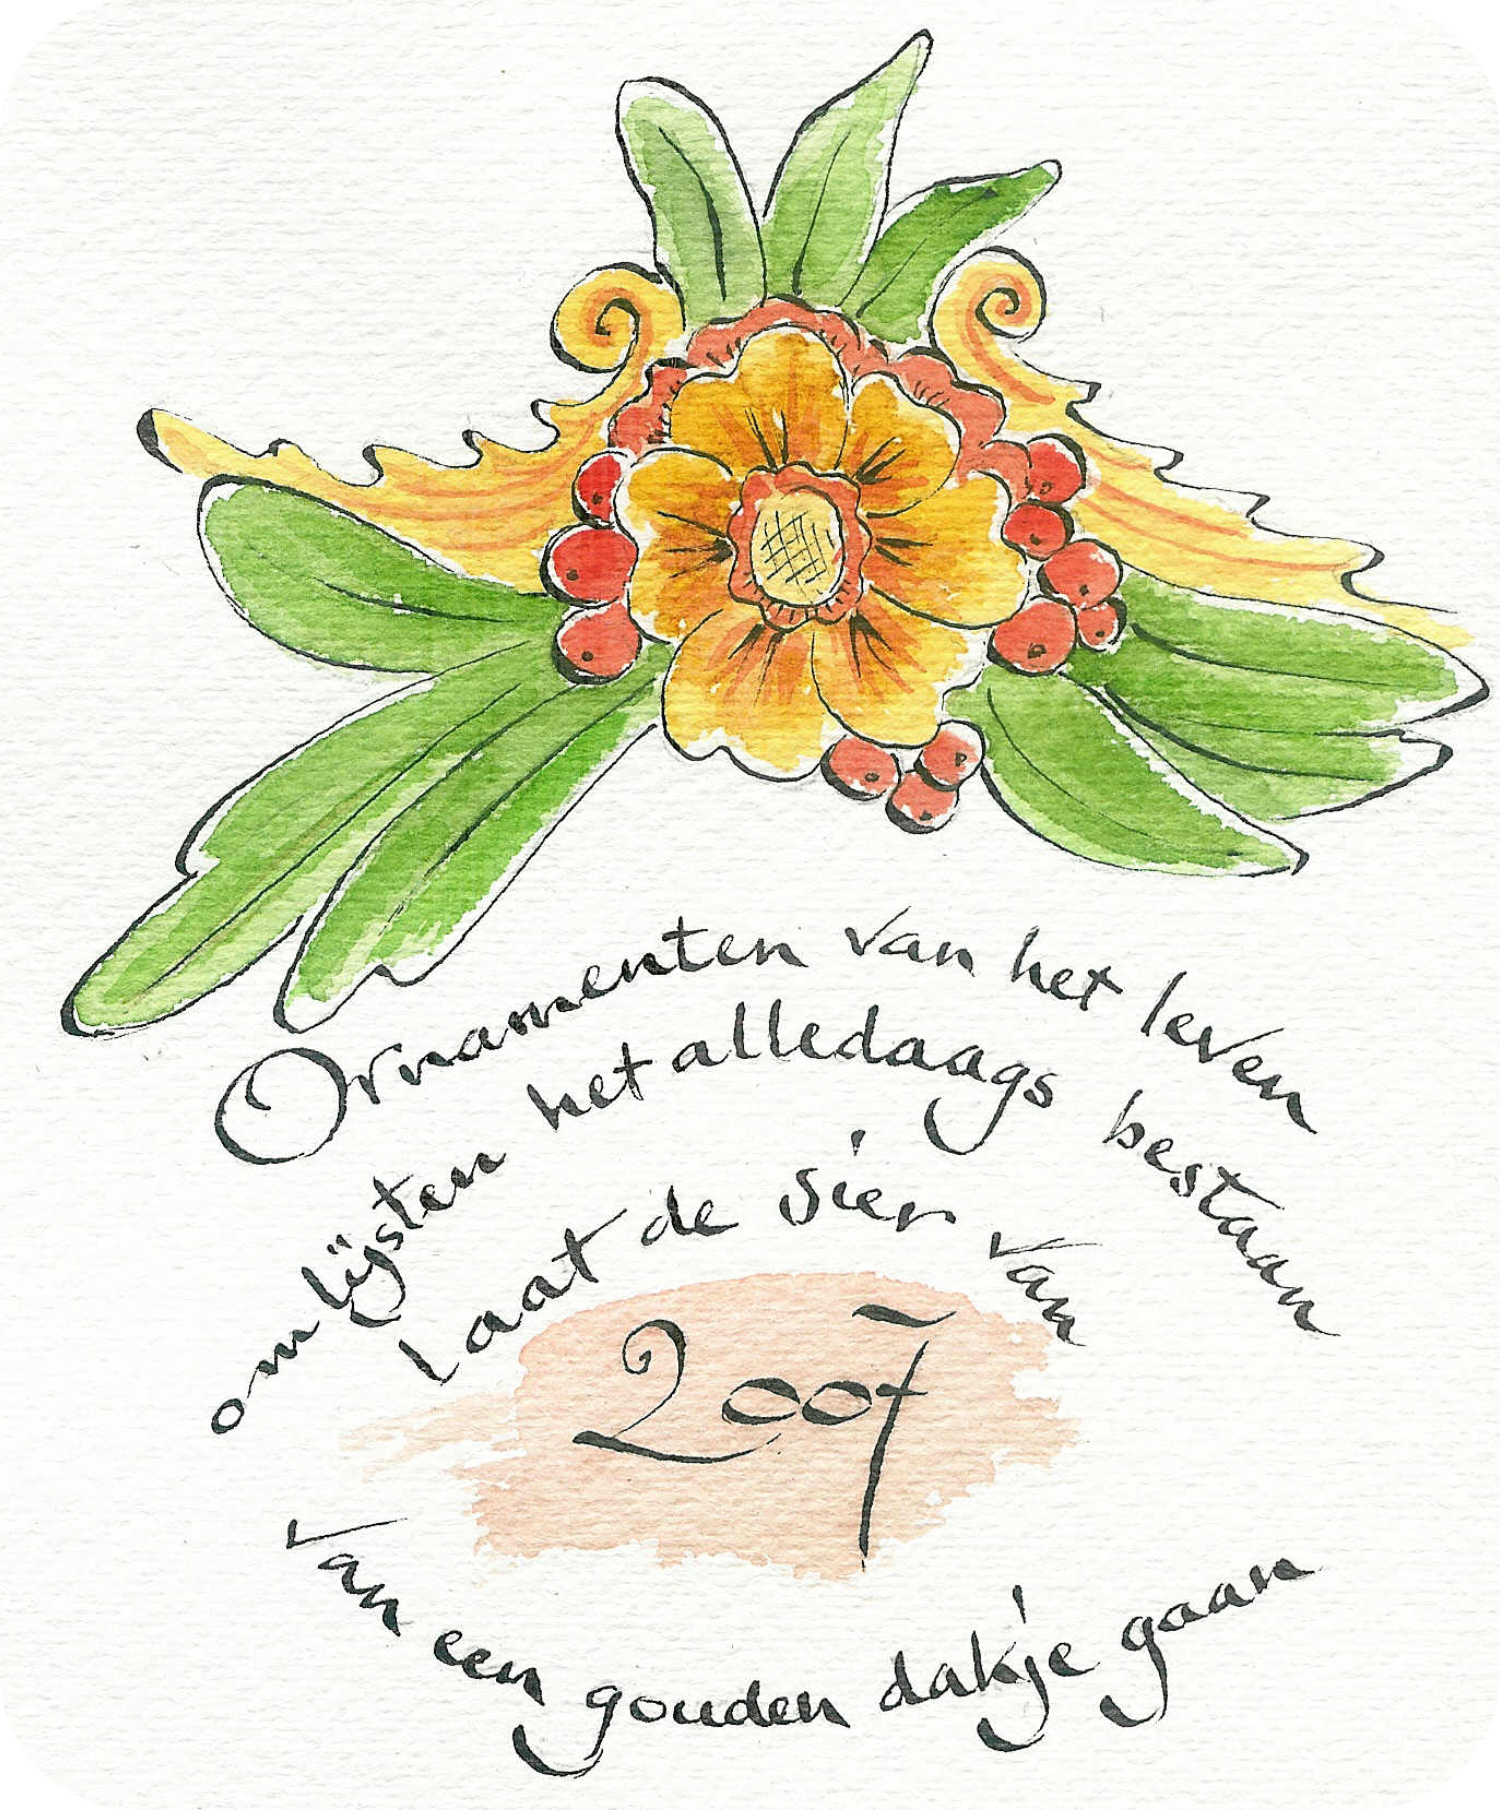 Ornamenten van het leven
omlijsten het alledaags bestaan
laat de sier van
2007
van een gouden dakje gaan